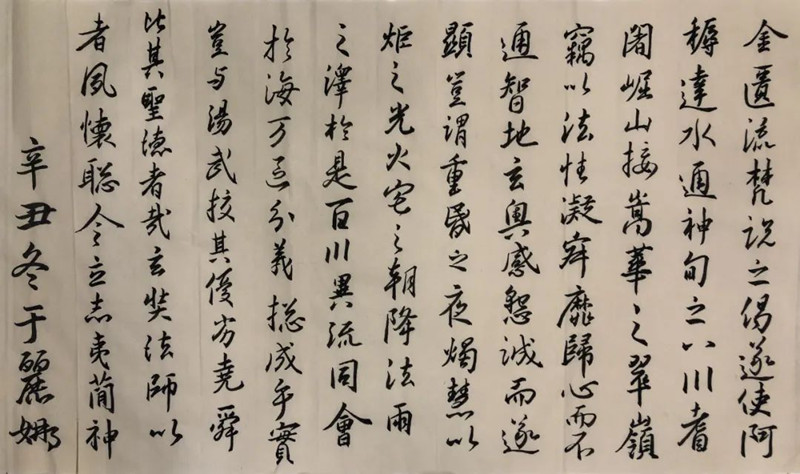 金匱流梵說之偈遂使阿
耨達水通神甸之八川耆
闍崛山接嵩華之翠嶺
竊以法性凝寂靡歸心而不
通智地玄奧感懇誠而遂
顯豈謂重昏之夜燭慧以
炬之光火宅之朝降法雨
之澤於是百川異流同會
於海万區分義揔成乎實
豈与湯武挍其優劣堯舜
比其聖德者哉玄奘法師以
者夙懷聰令立志夷簡神
辛丑冬于麗娜